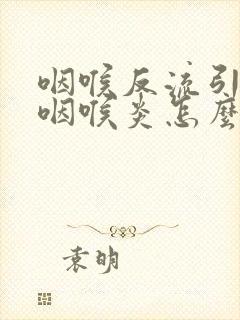 咽喉反流引
咽喉炎怎麼
袁明